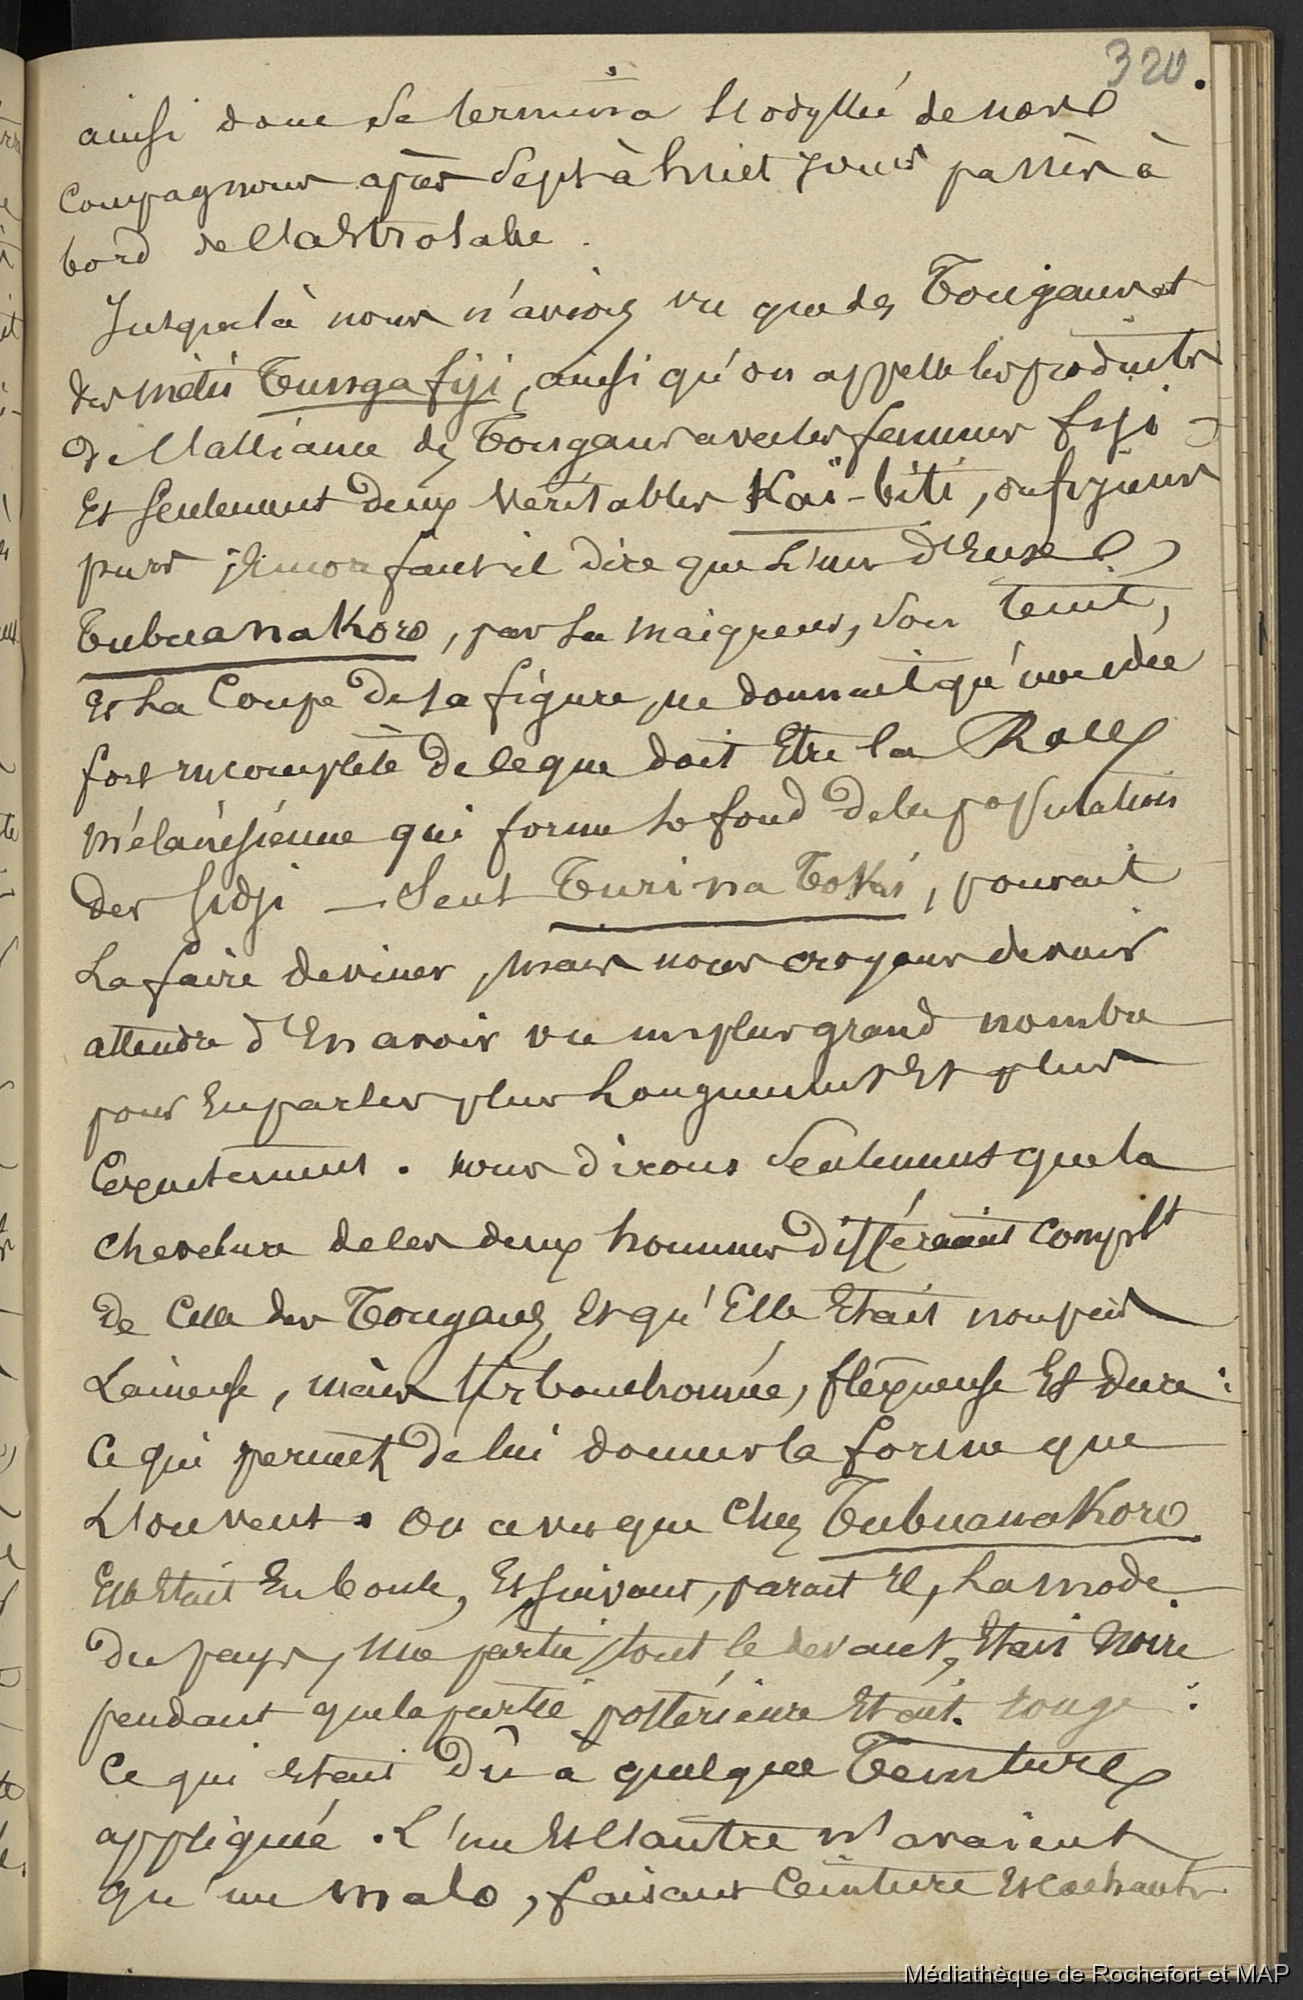 320.
ainsi donc se termina l'odyssée de nos
compagnons après sept à huit jours passés à
bord de l'astrolabe.
Jusque là nous n'avions vu que des Tongans et
des métis Tunga fiji, ainsi qu'on appelle les produits
de l'alliance des Tongans avec les femmes fiji
et seulement deux véritables Kaï-biti, ou fijiens
purs ; encore faut-il dire que l'un d'Eux
Tubuanakoro, par sa maigreur, son teint,
et la Coupe de sa figure, ne donnait qu'une idée
fort incomplète de ce que doit Etre la Race
mélanésienne qui forme le fond de la population
des fidji — Seul Turi na Toki, pouvait
la faire deviner, mais nous croyons devoir
attendre d'En avoir vu un plus grand nombre
pour En parler plus longuement Et plus
Exactement. nous dirons seulement que la
chevelure de ces deux hommes différait complt
de Celle des Tongans, Et qu'Elle Etait non pas
Laineuse, mais tirbouchonnée, flexueuse Et dure :
Ce qui permet de lui donner la forme que
L'on veut. On a vu que chez Tubuanakoro
Elle Etait En boule, Et suivant, parait Il, la mode
du pays, une partie, tout le devant, Etait Noire
pendant que la partie postérieure Etait rouge :
Ce qui Etait Dû à quelque Teinture
appliquée. L'un Et l'autre n'avaient
qu'un malo, faisant Ceinture Et cachant
Médiathèque de Rochefort et MAP